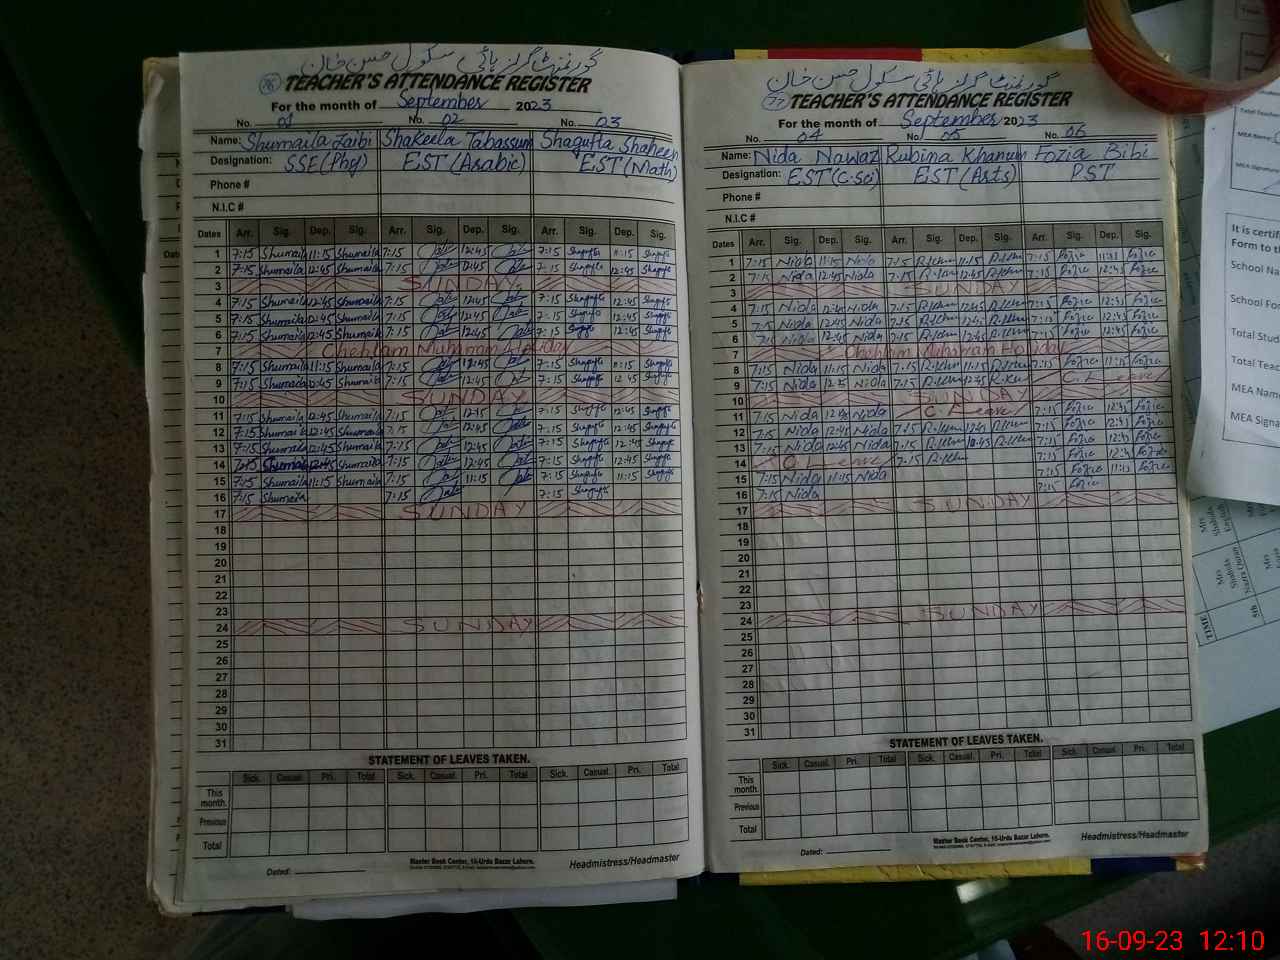 گورنمنٹ گرلز ہائی سکول حسن خان
76 TEACHER'S ATTENDANCE REGISTER
For the month of September 2023
No. 01 No. 02 No. 03
Name: Shumaila Zaibi Shakeela Tabassum Shagufta Shaheen
Designation: SSE(Phy) EST(Arabic) EST(Math)
Phone #
N.I.C #
Dates Arr. Sig. Dep. Sig. Arr. Sig. Dep. Sig. Arr. Sig. Dep. Sig.
1 7:15 Shumaila 11:15 Shumaila 7:15 12:45 7:15 Shagufta 11:15 Shagufta
2 7:15 Shumaila 12:45 Shumaila 7:15 12:45 7:15 Shagufta 12:45 Shagufta
3 SUNDAY
4 7:15 Shumaila 12:45 Shumaila 7:15 12:45 7:15 Shagufta 12:45 Shagufta
5 7:15 Shumaila 12:45 Shumaila 7:15 12:45 7:15 Shagufta 12:45 Shagufta
6 7:15 Shumaila 12:45 Shumaila 7:15 12:45 7:15 Shagufta 12:45 Shagufta
7 Chehlam Muharram Holiday
8 7:15 Shumaila 11:15 Shumaila 7:15 12:45 7:15 Shagufta 11:15 Shagufta
9 7:15 Shumaila 12:45 Shumaila 7:15 12:45 7:15 Shagufta 12:45 Shagufta
10 SUNDAY
11 7:15 Shumaila 12:45 Shumaila 7:15 7:15 Shagufta 12:45 Shagufta
12 7:15 Shumaila 12:45 Shumaila 7:15 12:45 7:15 Shagufta 12:45 Shagufta
13 7:15 Shumaila 12:45 Shumaila 7:15 12:45 7:15 Shagufta 12:45 Shagufta
14 7:15 Shumaila 12:45 Shumaila 7:15 12:45 7:15 Shagufta 12:45 Shagufta
15 7:15 Shumaila 11:15 Shumaila 7:15 11:15 7:15 Shagufta 11:15 Shagufta
16 7:15 Shumaila 7:15 7:15 Shagufta
17 SUNDAY
18
19
20
21
22
23
24 SUNDAY
25
26
27
28
29
30
31
STATEMENT OF LEAVES TAKEN.
Sick. Casual. Pri. Total Sick. Casual. Pri. Total Sick. Casual. Pri. Total
This month.
Previous
Total
Master Book Center, 10-Urdu Bazar Lahore.
Dated: Headmistress/Headmaster
گورنمنٹ گرلز ہائی سکول حسن خان
77 TEACHER'S ATTENDANCE REGISTER
For the month of September 2023
No. 04 No. 05 No. 06
Name: Nida Nawaz Rubina Khanum Fozia Bibi
Designation: EST(C.Sci) EST(Arts) PST
Phone #
N.I.C #
Dates Arr. Sig. Dep. Sig. Arr. Sig. Dep. Sig. Arr. Sig. Dep. Sig.
1 7:15 Nida 11:15 Nida 7:15 11:15 7:15 Fozia Fozia
2 7:15 Nida 12:45 Nida 7:15 12:45 7:15 Fozia 12:45 Fozia
3 SUNDAY
4 7:15 Nida 12:45 Nida 7:15 12:45 7:15 Fozia 12:45 Fozia
5 7:15 Nida 12:45 Nida 7:15 12:45 7:15 Fozia 12:45 Fozia
6 7:15 Nida 12:45 Nida 7:15 12:45 7:15 Fozia 12:45 Fozia
7 Chehlam Muharram Holiday
8 7:15 Nida 11:15 Nida 7:15 11:15 7:15 Fozia 11:15 Fozia
9 7:15 Nida Nida 7:15 12:45 C. Leave
10 SUNDAY
11 7:15 Nida Nida C. Leave 7:15 Fozia 12:45 Fozia
12 7:15 Nida 12:45 Nida 7:15 7:15 Fozia 12:45 Fozia
13 7:15 Nida 12:45 Nida 7:15 7:15 Fozia 12:45 Fozia
14 Leave 7:15 7:15 Fozia 12:45 Fozia
15 7:15 Nida 11:15 Nida 7:15 Fozia 11:15 Fozia
16 7:15 Nida 7:15 Fozia
17 SUNDAY
18
19
20
21
22
23
24 SUNDAY
25
26
27
28
29
30
31
STATEMENT OF LEAVES TAKEN.
Sick. Casual. Pri. Total Sick. Casual. Pri. Total Sick. Casual. Pri. Total
This month.
Previous
Total
Master Book Center, 10-Urdu Bazar Lahore.
Dated: Headmistress/Headmaster
It is certif
Form to th
School Na
School Fo
Total Stud
Total Teac
MEA Name
MEA Signa
TIME
16-09-23 12:10